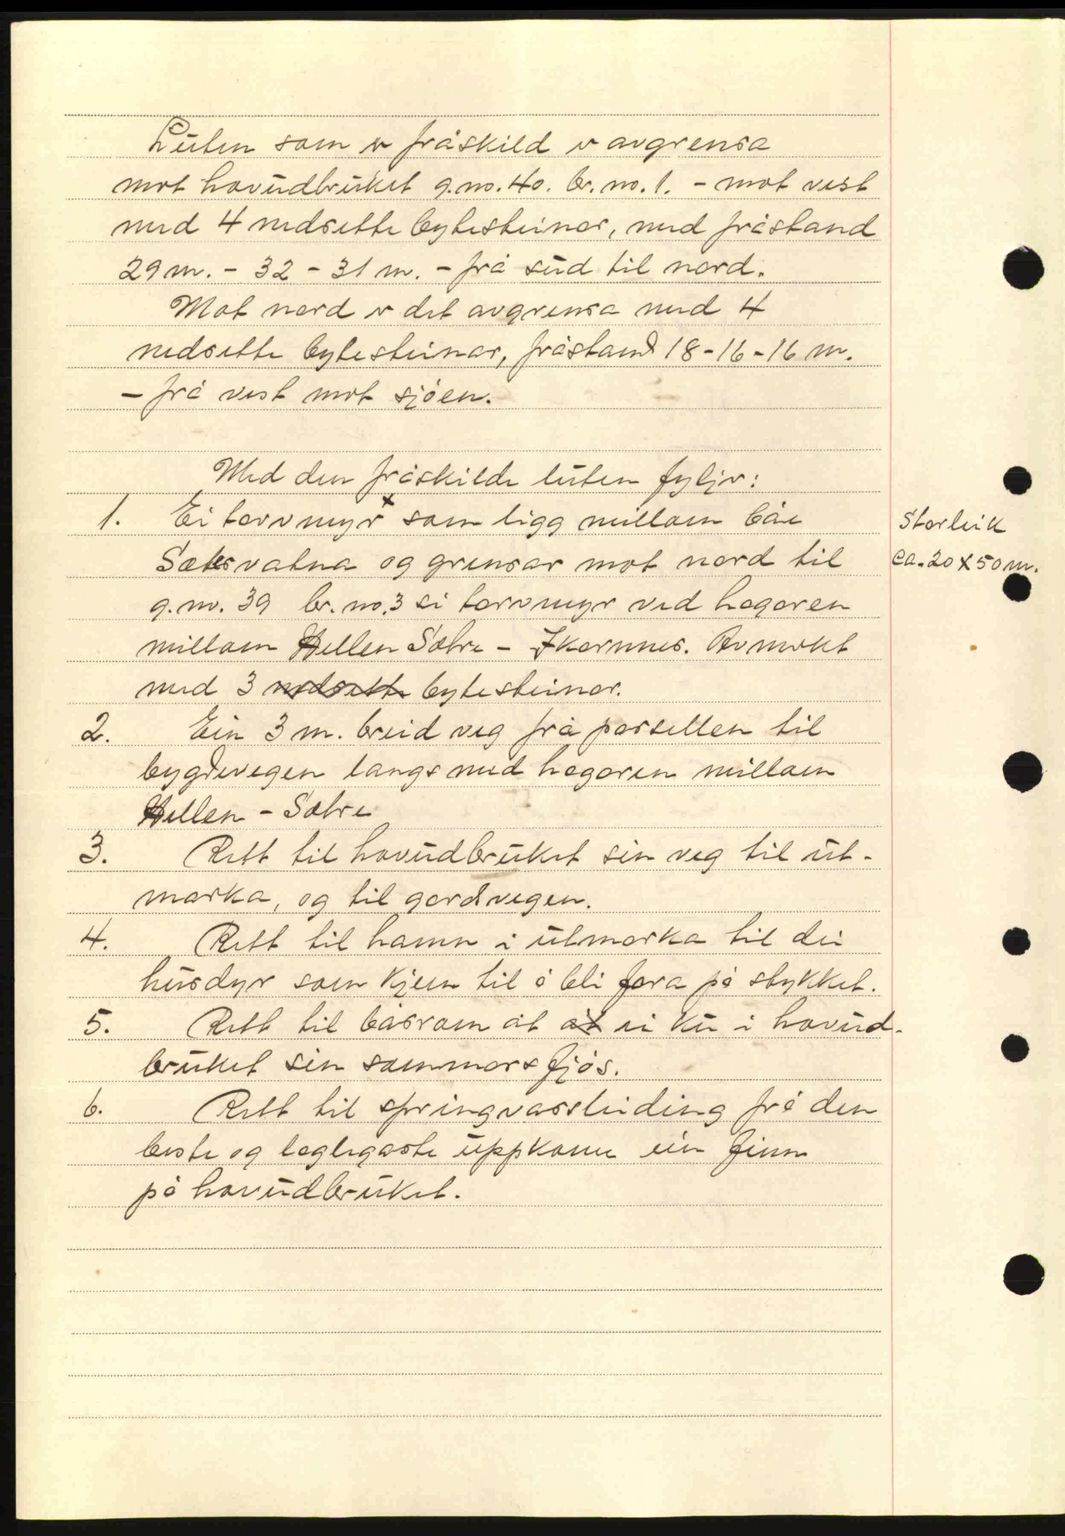 Luten som er fråskild er avgrensa
mot hovudbruket g.no. 40. br. no. 1. - mot vest
med 4 nedsette bytesteinar, med fråstand
29 m. - 32 - 31 m. - frå sud til nord.
Mot nord er det avgrensa med 4
nedsette bytesteinar, fråstand 18-16-16 m.
- frå vest mot sjøen.
Med den fråskilde luten fylgjer:
1. Ei torvmyr x som ligg millom båe
Storleik
Sætrevatna og grensar mot nord til
ca. 20 x 50 m.
g.no. 39 br. no. 3 ei torvmyr ved hagaren
millom Hellen Sæbre - Ikornnes. Avmerkt
med 3 nedsette bytesteinar.
2. Ein 3 m. breid veg frå parsellen til
bygdevegen langs med hagaren millom
Hellen - Sæbre
3. Rett til hovudbruket sin veg til ut-
marka, og til gardvegen.
4. Rett til hamn i utmarka til dei
husdyr som kjem til å bli fora på stykket.
5. Rett til båsrom åt ei ku i hovud-
bruket sin sommarsfjøs.
6. Rett til springvassleiding frå den
beste og laglegaste uppkome ein finn
på hovudbruket.